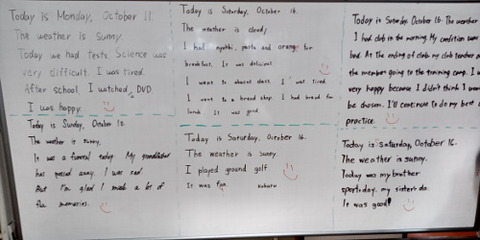 Today is Monday, October 11.
The weather is sunny.
Today we had tests. Science was
very difficult. I was tired.
After school, I watched DVD.
I was happy.
Today is Saturday, October 16.
The weather is cloudy.
I had pasta and orange for
breakfast. It was delicious.
I went to school. I was tired
I went to a bread shop. I had bread for
lunch. It was good.
Today is Saturday, October 16. The weather
I had club in the morning. My condition
bad. At the ending of club, my club teacher
the member going to the training camp. I w
very happy because I didn't think I
be chosen. I'll continue to do my best
practice.
Today is Sunday, October 10.
The weather is sunny.
It was a funeral today. My grandfather
has passed away. I was sad.
But I'm glad I made a lot of
the memories.
Today is Saturday, October 16.
The weather is sunny.
I played ground golf
It was fun.
Today is saturday, October 16.
The weather is sunny.
Today was my brother
sportsday. my sister's do.
It was good!